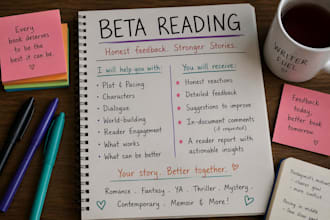 Every
book deserves
to be the
best it can be.
BETA READING
Honest feedback. Stronger Stories.
I will help you with:
• Plot & Pacing
• Characters
• Dialogue
• World-building
• Reader Engagement
• What works
• What can be better
You will receive:
Honest reactions
Detailed feedback
Suggestions to improve
In-document comments
(if requested)
A reader report with
actionable insights
Your story. Better together.
Romance . Fantasy . YA . Thriller . Mystery .
Contemporary . Memoir & More!
WRITER
FUEL
Feedback
today,
better book
tomorrow